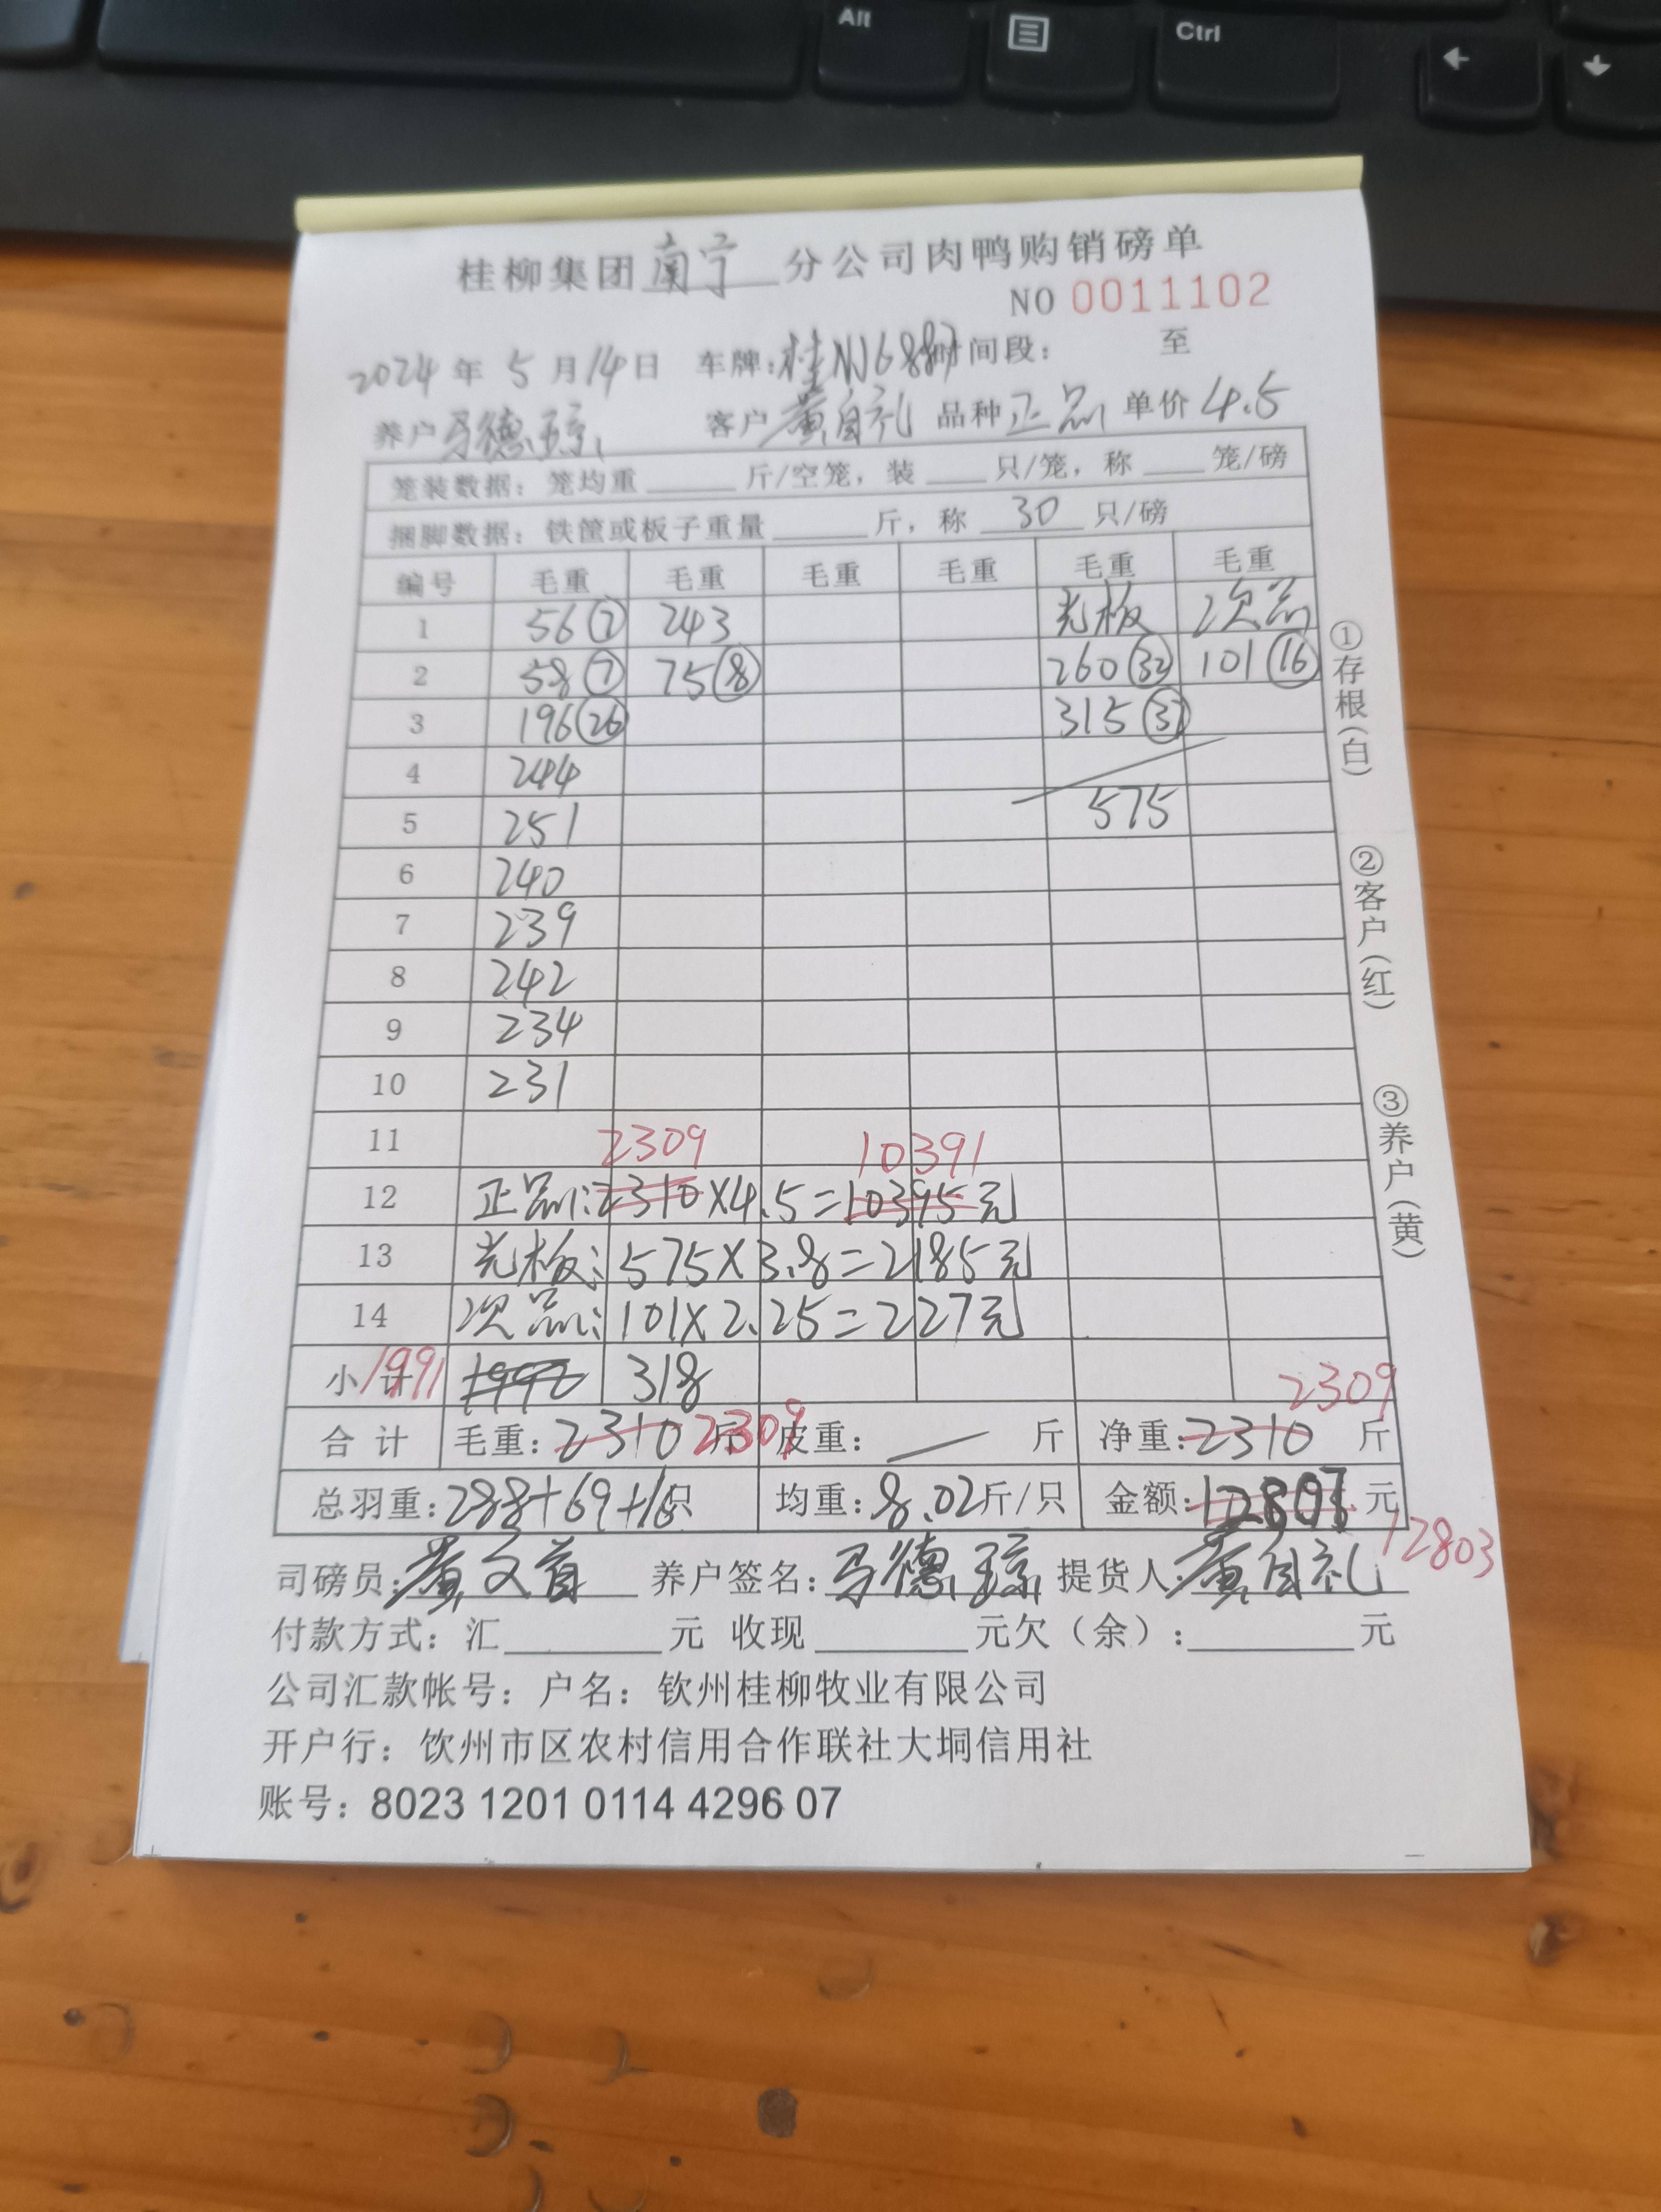 Alt
Ctrl
桂柳集团南宁分公司肉鸭购销磅单
NO 0011102
2024年5月14日 车牌:桂N 时间段: 至
养户马德琼 客户黄自礼 品种正品 单价4.5
笼装数据: 笼均重 斤/空笼, 装 只/笼, 称 笼/磅
捆脚数据: 铁筐或板子重量 斤, 称 30 只/磅
编号 毛重 毛重 毛重 毛重 毛重 毛重
1 56⑦ 243 光板 次品
2 58⑦ 75⑧ 260㉜ 101⑯
3 196㉖ 315㊲
4 244
5 251 575
6 240
7 239
8 242
9 234
10 231
11 2309 10391
12 正品:2310×4.5=10395元
13 光板:575×3.8=2185元
14 次品:101×2.25=227元
小计 1991 1992 318 2309
合计 毛重:2310斤 2309 皮重:— 斤 净重:2310 斤
总羽重:288+69+16只 均重:8.02斤/只 金额:12807元
12803
司磅员:黄文首 养户签名:马德琼 提货人:黄自礼
付款方式: 汇 元 收现 元欠(余): 元
公司汇款帐号: 户名: 钦州桂柳牧业有限公司
开户行: 钦州市区农村信用合作联社大垌信用社
账号: 8023 1201 0114 4296 07
①存根(白)
②客户(红)
③养户(黄)